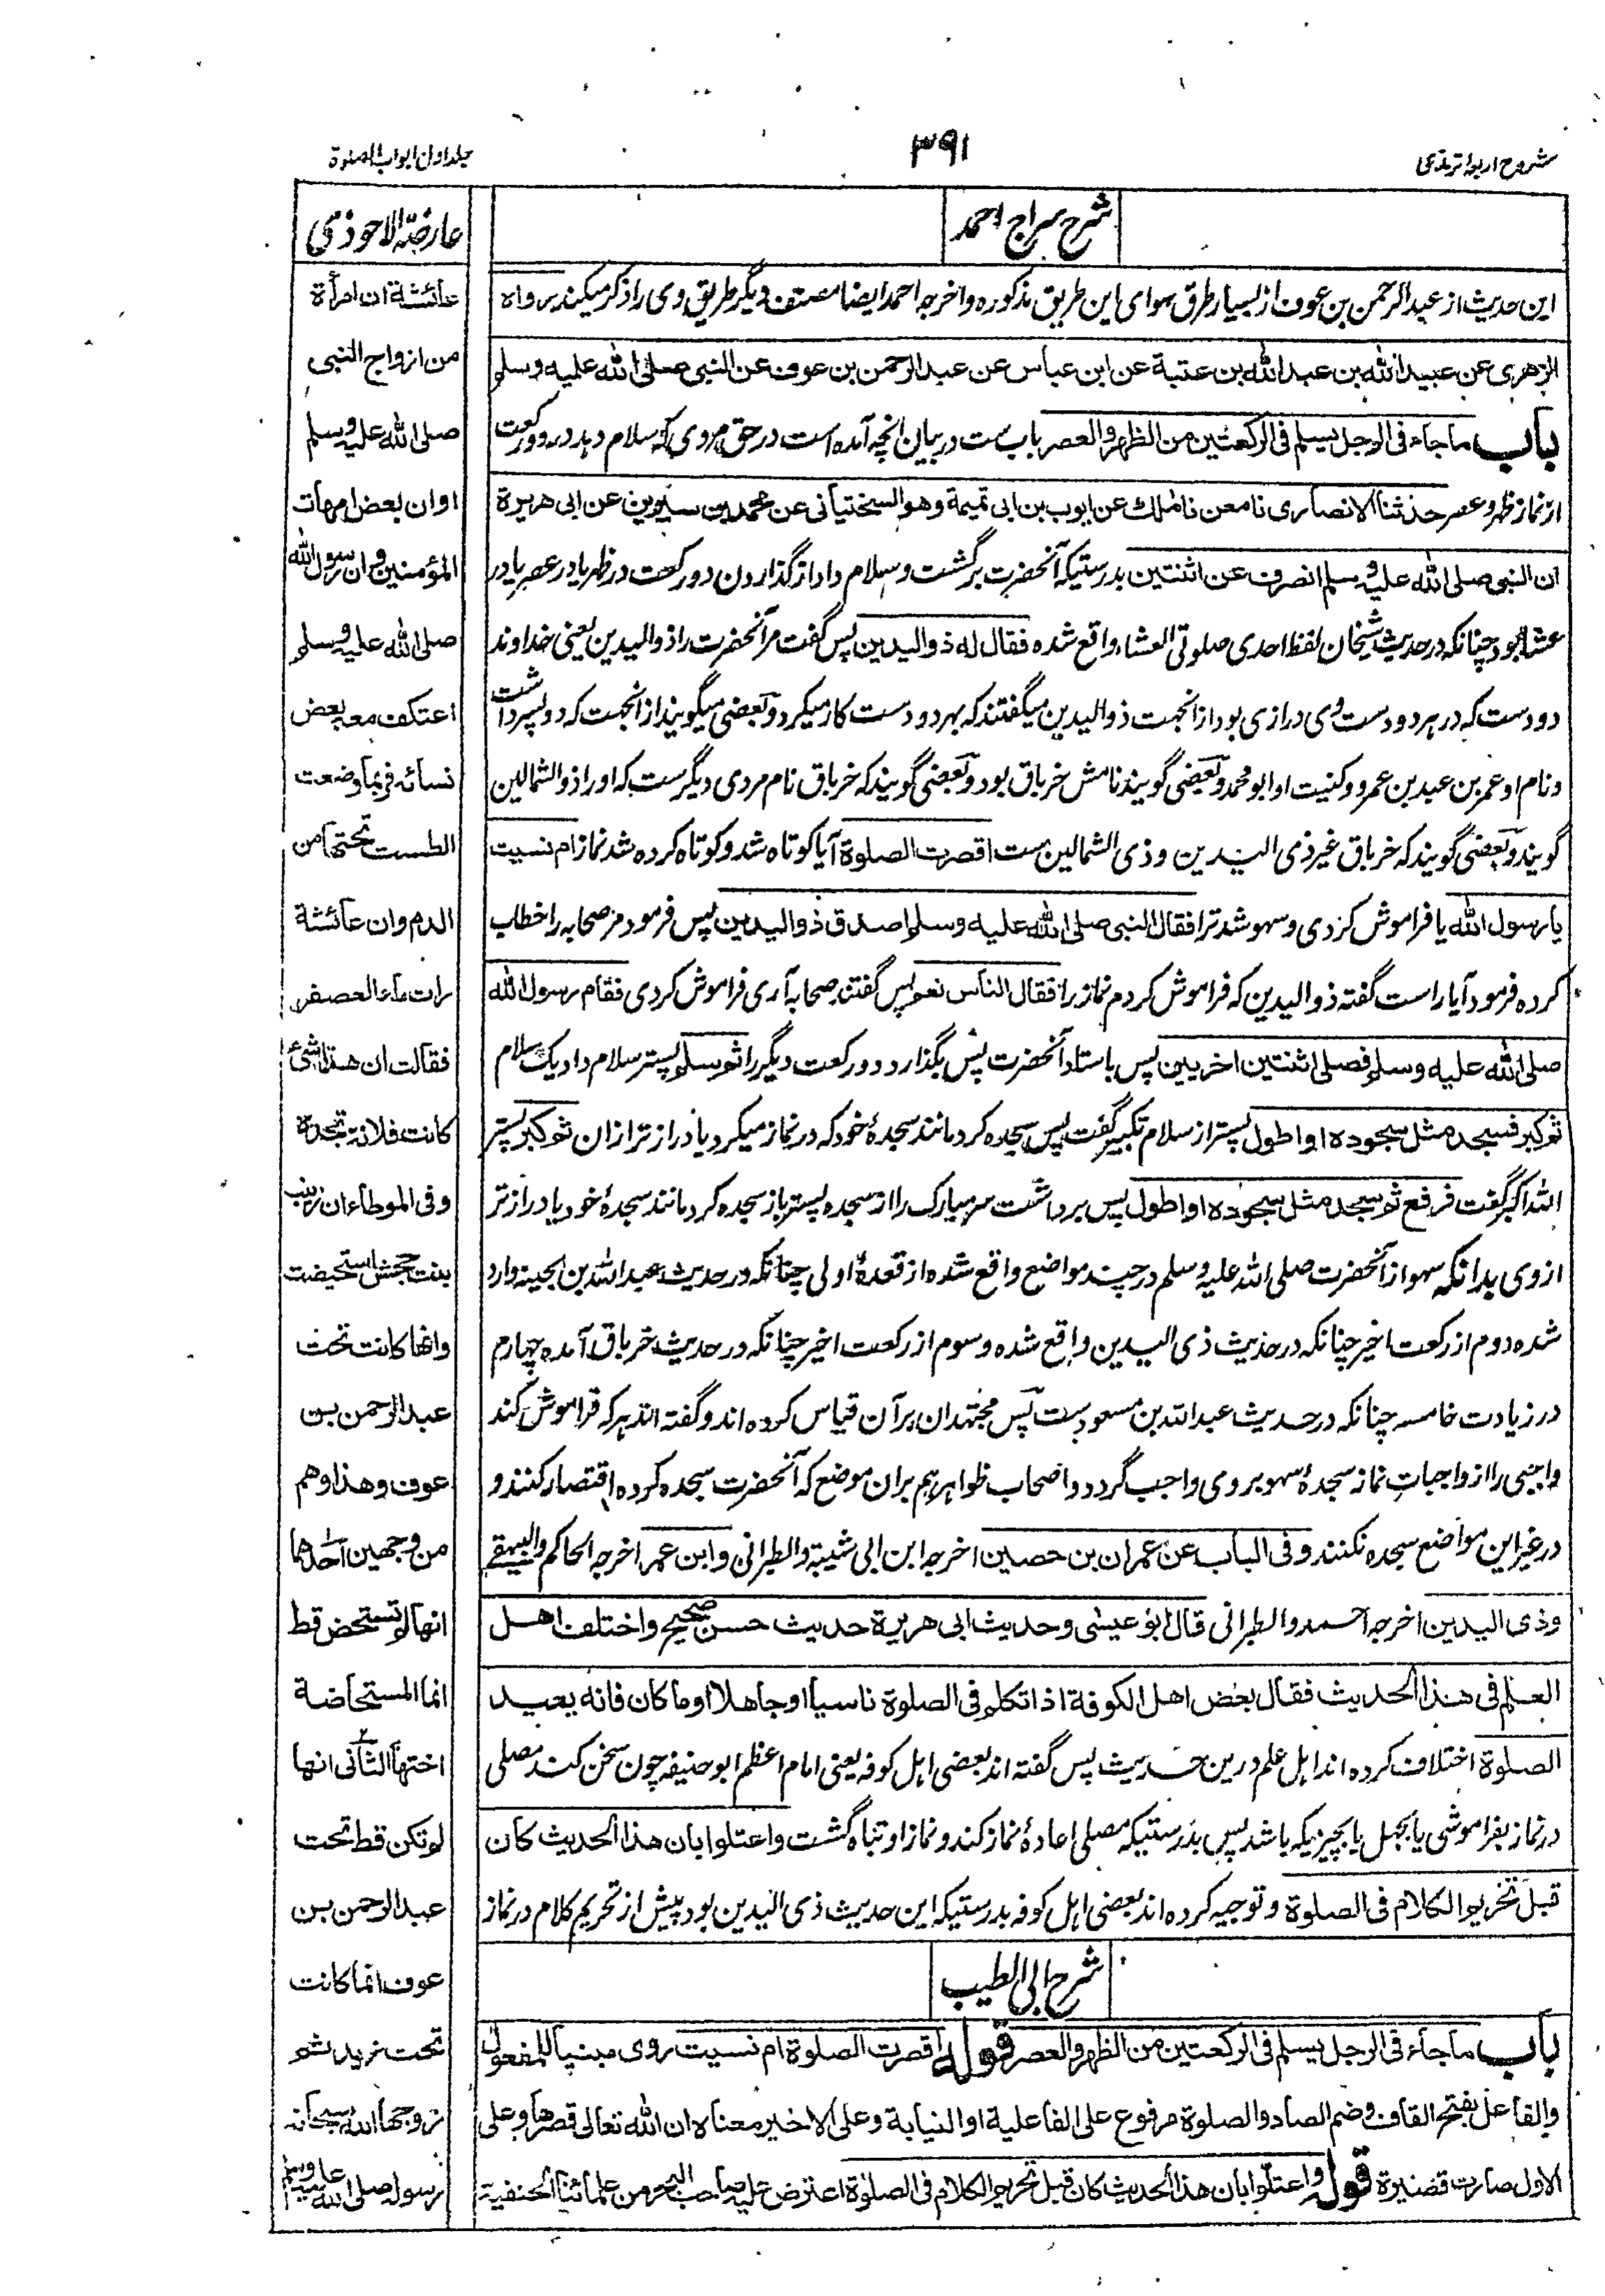 شروح اربعه ترمذی
۳۹۱
جلد اول ابواب الصلوة
شرح سراج احمد
این حدیث از عبد الرحمن بن عوف از بسیار طرق سوای این طریق مذکوره واخرجه احمد ایضا مصنف دیگر طریق وی را ذکر میکند رواه
الزهری عن عبید الله بن عبد الله بن عتبة عن ابن عباس عن عبد الرحمن بن عوف عن النبی صلی الله علیه وسلم
باب ماجاء فی الرجل یسلم فی الرکعتین من الظهر والعصر باب ست در بیان انچه آمده است در حق مردی که سلام دهد در دو رکعت
از نماز ظهر وعصر حدثنا الانصاری نا معن نا مالك عن ایوب بن ابی تمیمة وهو السختیانی عن محمد بن سیرین عن ابی هریرة
ان النبی صلی الله علیه وسلم انصرف عن اثنتین بدرستیکه آنحضرت برگشت وسلام داد از گذاردن دو رکعت در ظهر یا در عصر یا در
عشا بود چنانکه در حدیث شیخان لفظ احدی صلوتی العشاء واقع شده فقال له ذو الیدین پس گفت مر آنحضرت را ذو الیدین یعنی خداوند
دو دست که در هر دو دست وی درازی بود از انجهت ذو الیدین میگفتند که بهر دو دست کار میکرد وبعضی میگویند از انجهت که دو سپر داشت
ونام او عمر بن عبد بن عمرو وکنیت او ابو محمد وبعضی گویند نامش خرباق بود وبعضی گویند که خرباق نام مردی دیگر ست که او را ذو الشمالین
گویند وبعضی گویند که خرباق غیر ذی الیدین وذی الشمالین ست اقصرت الصلوة آیا کوتاه شد وکوتاه کرده شد نماز ام نسیت
یا رسول الله یا فراموش کردی وسهو شد ترا فقال النبی صلی الله علیه وسلم اصدق ذو الیدین پس فرمود مر صحابه را خطاب
کرده فرمود آیا راست گفته ذو الیدین که فراموش کردم نماز را فقال الناس نعم پس گفتند صحابه آری فراموش کردی فقام رسول الله
صلی الله علیه وسلم فصلی اثنتین اخریین پس باستاد آنحضرت پس بگذارد دو رکعت دیگر را ثم سلم پستر سلام داد یک سلام
ثم کبر فسجد مثل سجوده او اطول پستر از سلام تکبیر گفت پس سجده کرد مانند سجدهٔ خود که در نماز میکرد یا دراز تر ازان ثم کبر پستر
الله اکبر گفت فرفع ثم سجد مثل سجوده او اطول پس برداشت سر مبارک را از سجده پستر باز سجده کرد مانند سجدهٔ خود یا دراز تر
از وی بدانکه سهو از آنحضرت صلی الله علیه وسلم در چند مواضع واقع شده از قعدهٔ اولی چنانکه در حدیث عبد الله بن بحینه وارد
شده دوم از رکعت اخیر چنانکه در حدیث ذی الیدین واقع شده وسوم از رکعت اخیر چنانکه در حدیث خرباق آمده چهارم
در زیادت خامسه چنانکه در حدیث عبد الله بن مسعود ست پس مجتهدان بر آن قیاس کرده اند وگفته اند هر که فراموش کند
واجبی را از واجبات نماز سجدهٔ سهو بر وی واجب گردد واصحاب ظواهر هم بران موضع که آنحضرت سجده کرده اقتصار کنند و
در غیر این مواضع سجده نکنند وفی الباب عن عمران بن حصین اخرجه ابن ابی شیبة والطبرانی وابن عمر اخرجه الحاکم والبیهقی
وذی الیدین اخرجه احمد والطبرانی قال ابو عیسی وحدیث ابی هریرة حدیث حسن صحیح واختلف اهل
العلم فی هذا الحدیث فقال بعض اهل الکوفة اذا تکلم فی الصلوة ناسیا او جاهلا او ما کان فانه یعید
الصلوة اختلاف کرده اند اهل علم درین حدیث پس گفته اند بعضی اهل کوفه یعنی امام اعظم ابو حنیفه چون سخن کند مصلی
در نماز بفراموشی یا بجهل یا بچیزیکه باشد پس بدرستیکه مصلی اعادهٔ نماز کند ونماز او تباه گشت واعتلوا بان هذا الحدیث کان
قبل تحریم الکلام فی الصلوة وتوجیه کرده اند بعضی اهل کوفه بدرستیکه این حدیث ذی الیدین بود پیش از تحریم کلام در نماز
شرح ابی الطیب
باب ماجاء فی الرجل یسلم فی الرکعتین من الظهر والعصر قوله اقصرت الصلوة ام نسیت روی مبنیا للمفعول
والفاعل بفتح القاف وضم الصاد والصلوة مرفوع علی الفاعلیة او النیابة وعلی الاخیر معناه ان الله تعالی قصرها وعلی
الاول صارت قصیرة قوله واعتلوا بان هذا الحدیث کان قبل تحریم الکلام فی الصلوة اعترض علیه صاحب البحر من علمائنا الحنفیة
عارضة الاحوذی
عائشة ان امرأة
من ازواج النبی
صلی الله علیه وسلم
او ان بعض امهات
المؤمنین وان رسول الله
صلی الله علیه وسلم
اعتکف معه بعض
نسائه فربما وضعت
الطست تحتها من
الدم وان عائشة
رات ماء العصفر
فقالت ان هذا شئ
کانت فلانة تجده
وفی الموطاء ان زینب
بنت جحش استحیضت
وانها کانت تحت
عبد الرحمن بن
عوف وهذا وهم
من وجهین احدهما
انها لم تستحض قط
انما المستحاضة
اختها الثانی انها
لم تکن قط تحت
عبد الرحمن بن
عوف انما کانت
تحت زید ثم
زوجها الله سبحانه
رسوله صلی الله علیه وسلم